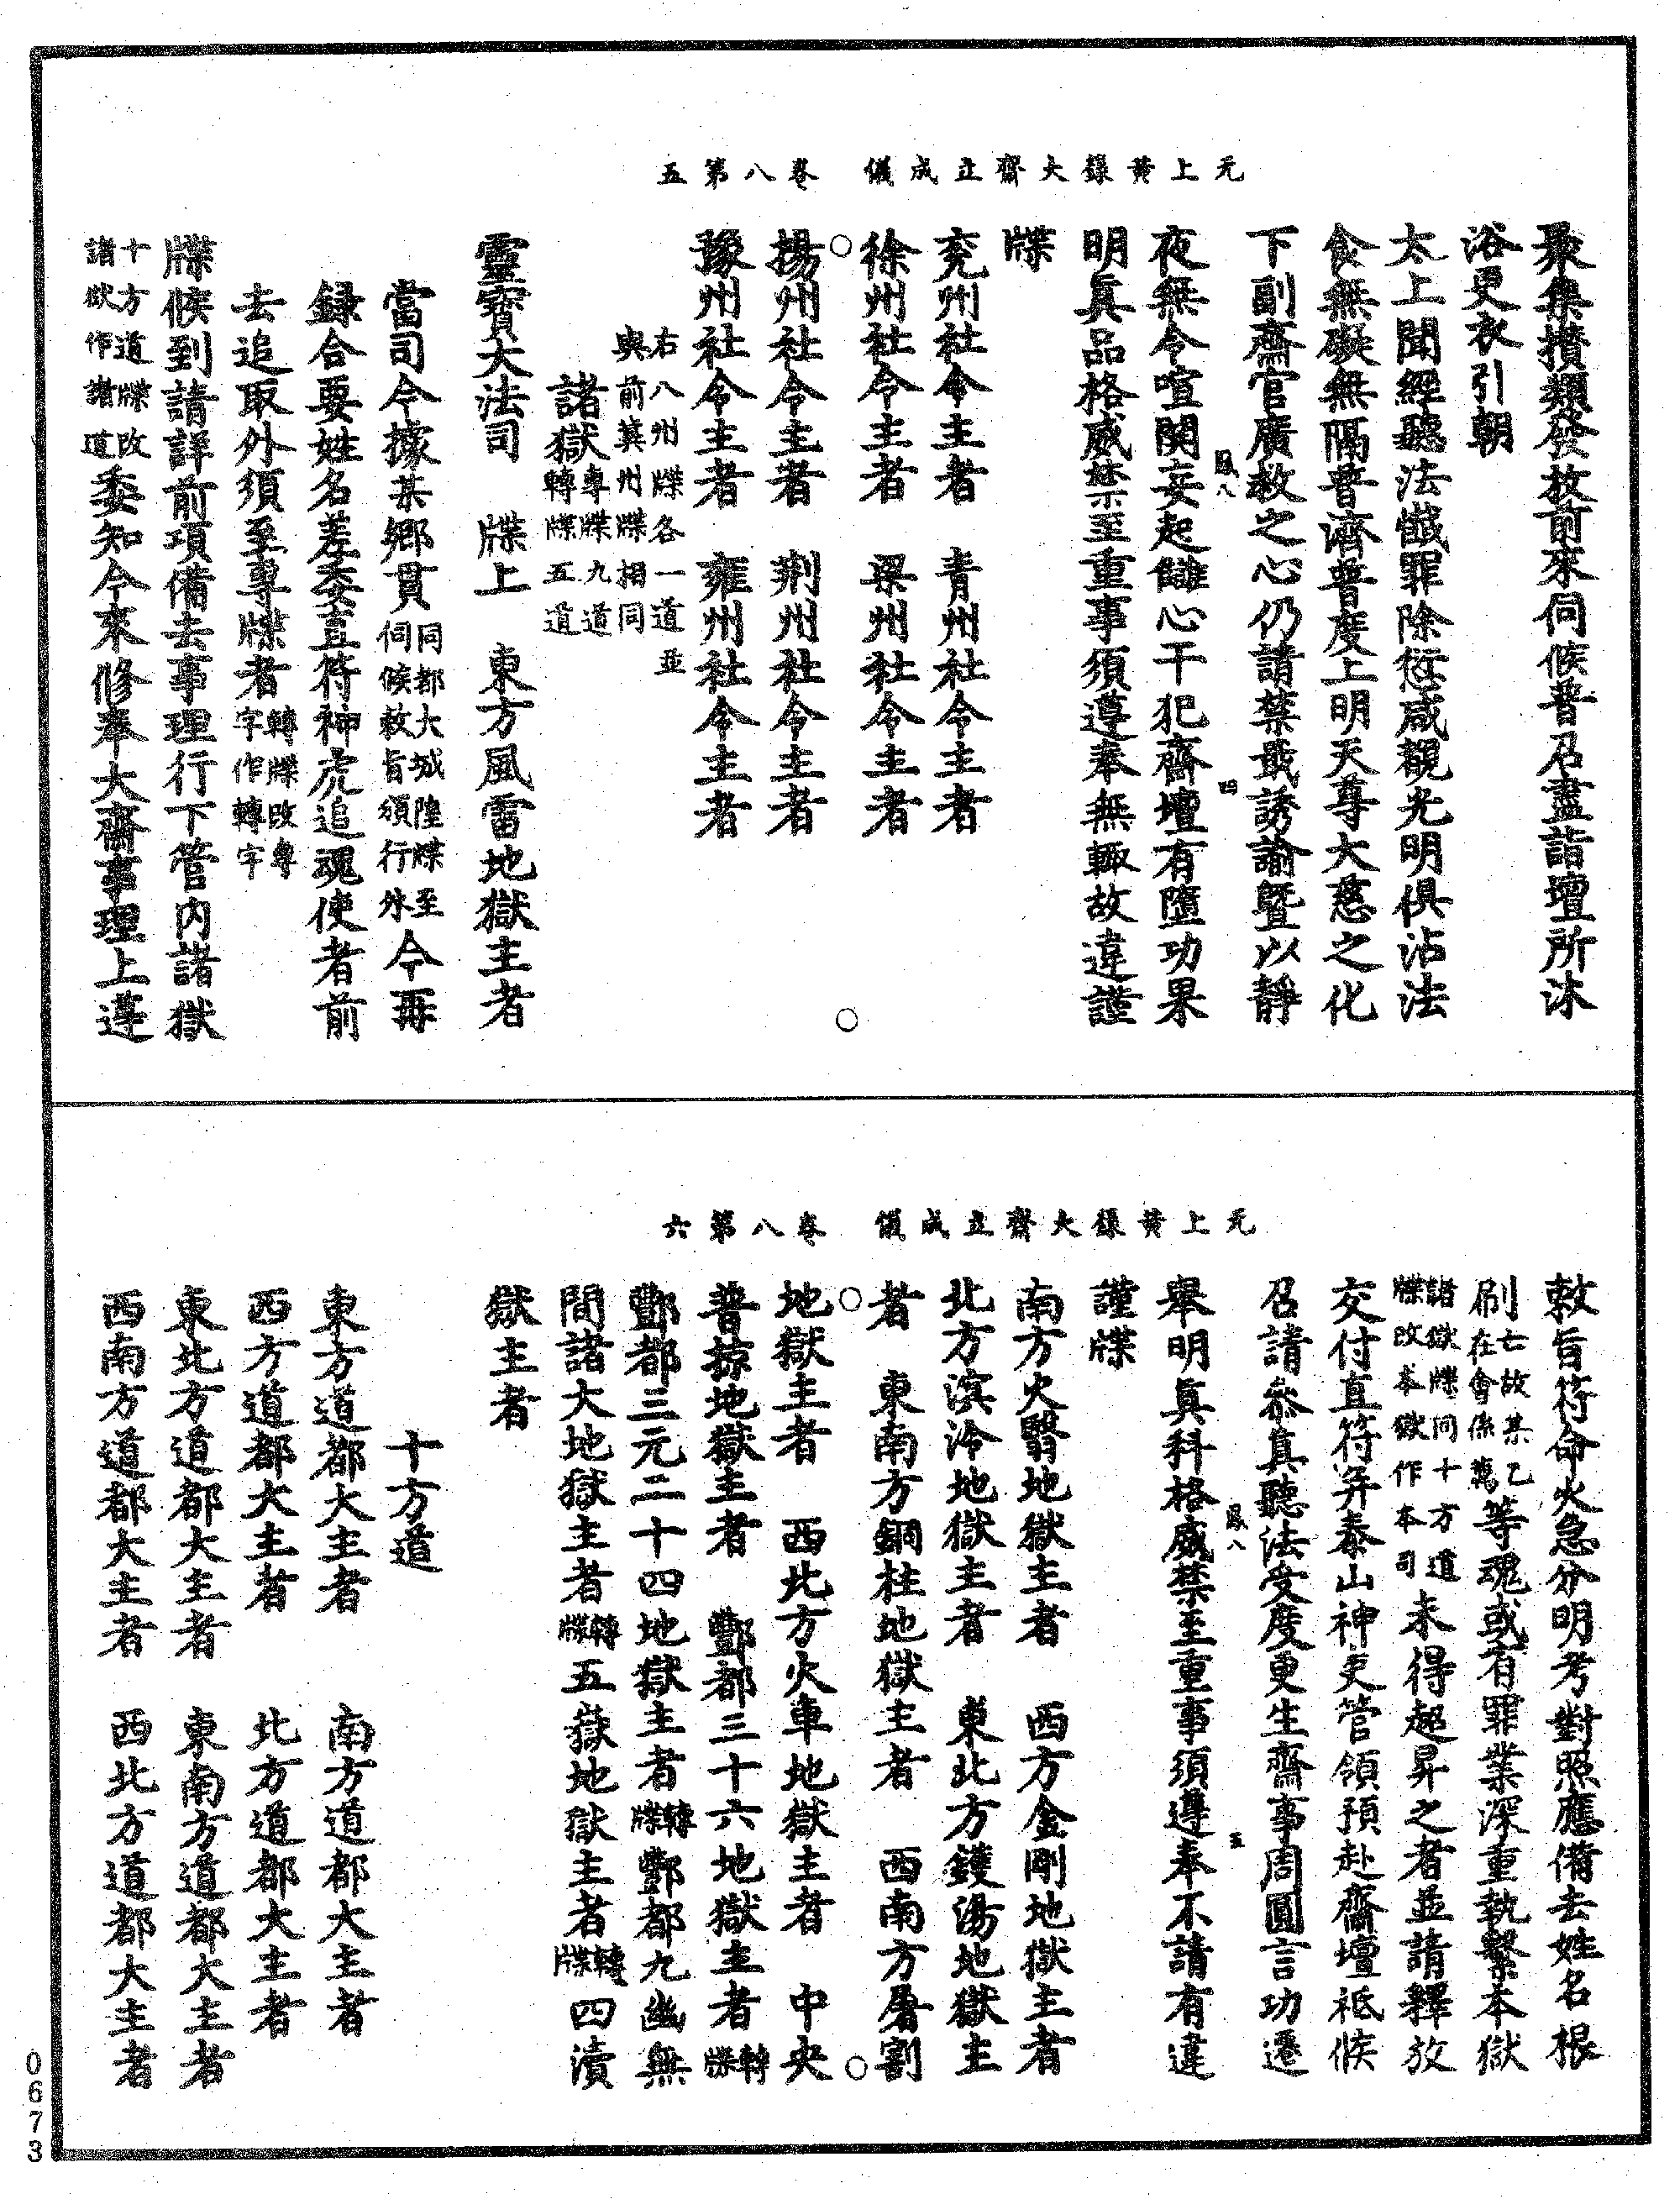 元上黃籙大齋立成儀　卷八第五
聚集攢類發放前來伺候普召盡詣壇所沐
浴更衣引朝
太上聞經聽法懺罪除愆咸覩光明俱沾法
食無礙無隔普濟普度上明天尊大慈之化
下副齋官廣救之心仍請禁戢誘諭曁以靜
夜無令喧鬨妄起讎心干犯齋壇有墮功果
明眞品格威禁至重事須遵奉無輒故違謹
牒
鳳八
四
兗州社令主者　青州社令主者
徐州社令主者　梁州社令主者
揚州社令主者　荆州社令主者
豫州社令主者　雍州社令主者
右八州牒各一道並
與前冀州牒相同
諸獄專牒九道
轉牒五道
靈寶大法司　牒上　東方風雷地獄主者
當司今據某鄉貫同都大城隍牒至
伺候敕旨頒行外今再
録合要姓名差委直符神虎追魂使者前
去追取外須至專牒者轉牒改專
字作轉字
牒候到請詳前項備去事理行下管內諸獄
十方道牒改
諸獄作諸道委知今來修奉大齋事理上遵
元上黃籙大齋立成儀　卷八第六
敕旨符命火急分明考對照應備去姓名根
刷亡故某乙
在會係薦等魂或有罪業深重執繫本獄
諸獄牒同十方道
牒改本獄作本司未得超昇之者並請釋放
交付直符并泰山神吏管領預赴齋壇祗候
召請叅眞聽法受度更生齋事周圓言功遷
舉明眞科格威禁至重事須遵奉不請有違
謹牒
鳳八
五
南方火翳地獄主者　西方金剛地獄主者
北方溟泠地獄主者　東北方鑊湯地獄主
者　東南方銅柱地獄主者　西南方屠割
地獄主者　西北方火車地獄主者　中央
普掠地獄主者　酆都三十六地獄主者轉牒
酆都三元二十四地獄主者轉牒酆都九幽無
間諸大地獄主者轉牒五嶽地獄主者轉牒四瀆
獄主者
十方道
東方道都大主者　南方道都大主者
西方道都大主者　北方道都大主者
東北方道都大主者　東南方道都大主者
西南方道都大主者　西北方道都大主者
0673